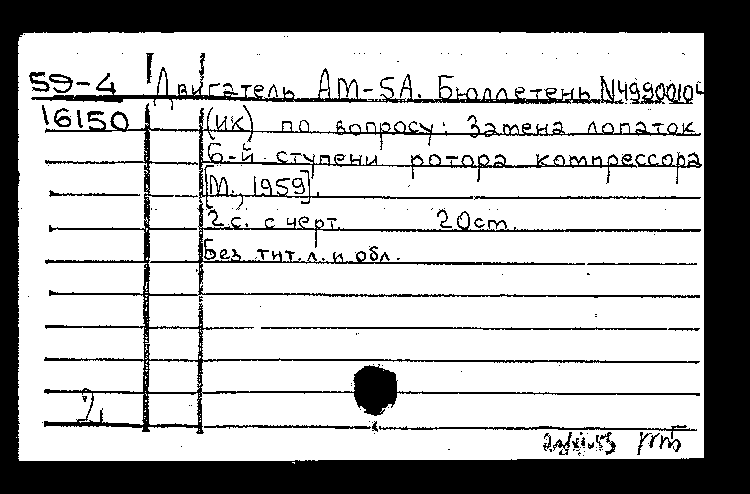 59-4 Двигатель АМ-5А. Бюллетень
16150 (ИК) по вопросу: Замена лопаток
6-й ступени ротора компрессора
[М., 1959].
2с. с черт. 20см.
Без тит. л. и обл.
2,